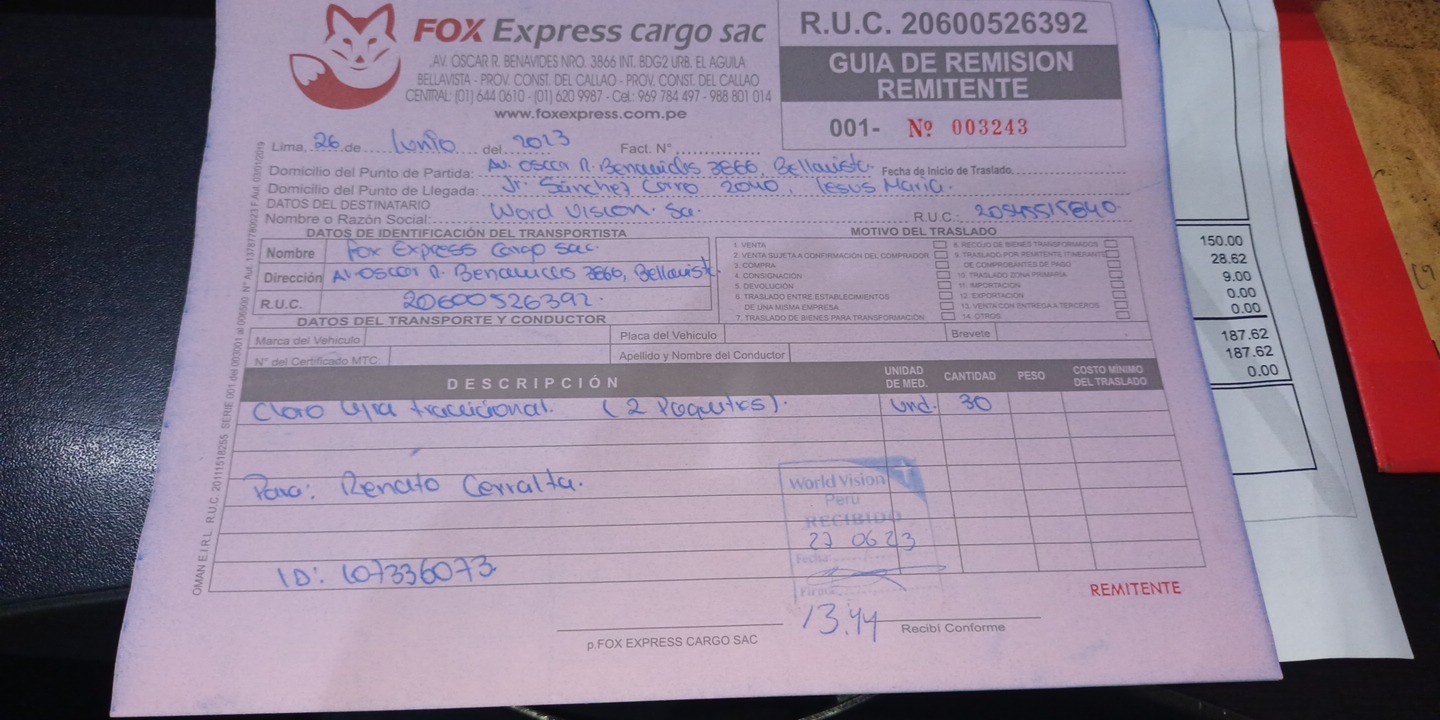 FOX Express cargo sac
AV. OSCAR R. BENAVIDES NRO. 3866 INT. BDG2 URB. EL AGUILA
BELLAVISTA - PROV. CONST. DEL CALLAO - PROV. CONST. DEL CALLAO
CENTRAL: (01) 644 0610 - (01) 620 9987 - Cel.: 969 784 497 - 988 801 014
www.foxexpress.com.pe
R.U.C. 20600526392
GUIA DE REMISION
REMITENTE
001- Nº 003243
Lima, 26 de Junio del 2023 Fact. N°
Domicilio del Punto de Partida: Av. Oscar R. Benavides 3866, Bellavista. Fecha de Inicio de Traslado
Domicilio del Punto de Llegada: Jr. Sánchez Cerro 2040, Jesus Maria.
DATOS DEL DESTINATARIO
Nombre o Razón Social: Word Vision. Sa. R.U.C.: 20545515840
DATOS DE IDENTIFICACIÓN DEL TRANSPORTISTA
Nombre Fox Express Cargo Sac.
Dirección Av. Oscar R. Benavides 3866, Bellavista
R.U.C. 20600526392.
MOTIVO DEL TRASLADO
1. VENTA
2. VENTA SUJETA A CONFIRMACIÓN DEL COMPRADOR
3. COMPRA
4. CONSIGNACIÓN
5. DEVOLUCIÓN
6. TRASLADO ENTRE ESTABLECIMIENTOS
DE UNA MISMA EMPRESA
7. TRASLADO DE BIENES PARA TRANSFORMACIÓN
8. RECOJO DE BIENES TRANSFORMADOS
9. TRASLADO POR REMITENTE ITINERANTE
DE COMPROBANTES DE PAGO
10. TRASLADO ZONA PRIMARIA
11. IMPORTACIÓN
12. EXPORTACIÓN
13. VENTA CON ENTREGA A TERCEROS
14. OTROS
DATOS DEL TRANSPORTE Y CONDUCTOR
Marca del Vehiculo Placa del Vehiculo Brevete
N° del Certificado MTC: Apellido y Nombre del Conductor
DESCRIPCIÓN UNIDAD DE MED. CANTIDAD PESO COSTO MÍNIMO DEL TRASLADO
Cloro Lejia tradicional. (2 Paquetes). Und. 30
Para: Renato Cerralta.
ID: 107336073
World Vision
Peru
RECIBIDO
27 06 23
Fecha
Firma
13.44
REMITENTE
p.FOX EXPRESS CARGO SAC
Recibí Conforme
150.00
28.62
9.00
0.00
0.00
187.62
187.62
0.00